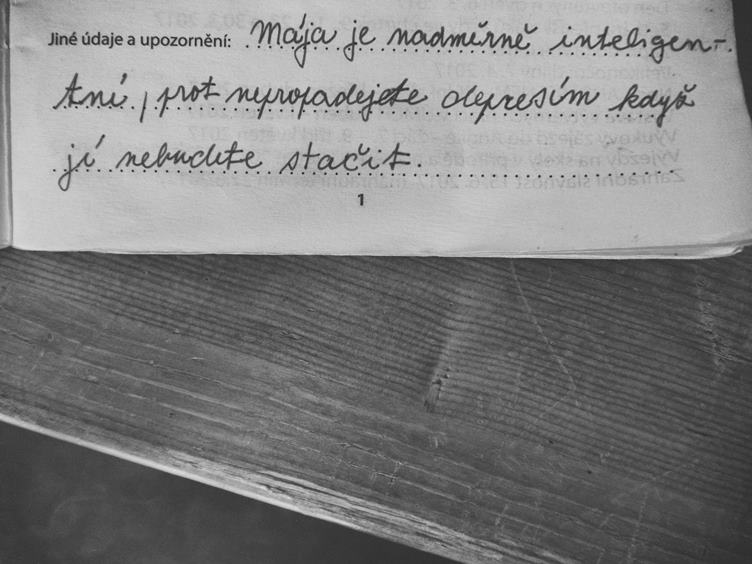 Jiné údaje a upozornění: Mája je nadměrně inteligen-
tní, prot nepropadejete depresím když
jí nebudete stačit.
1